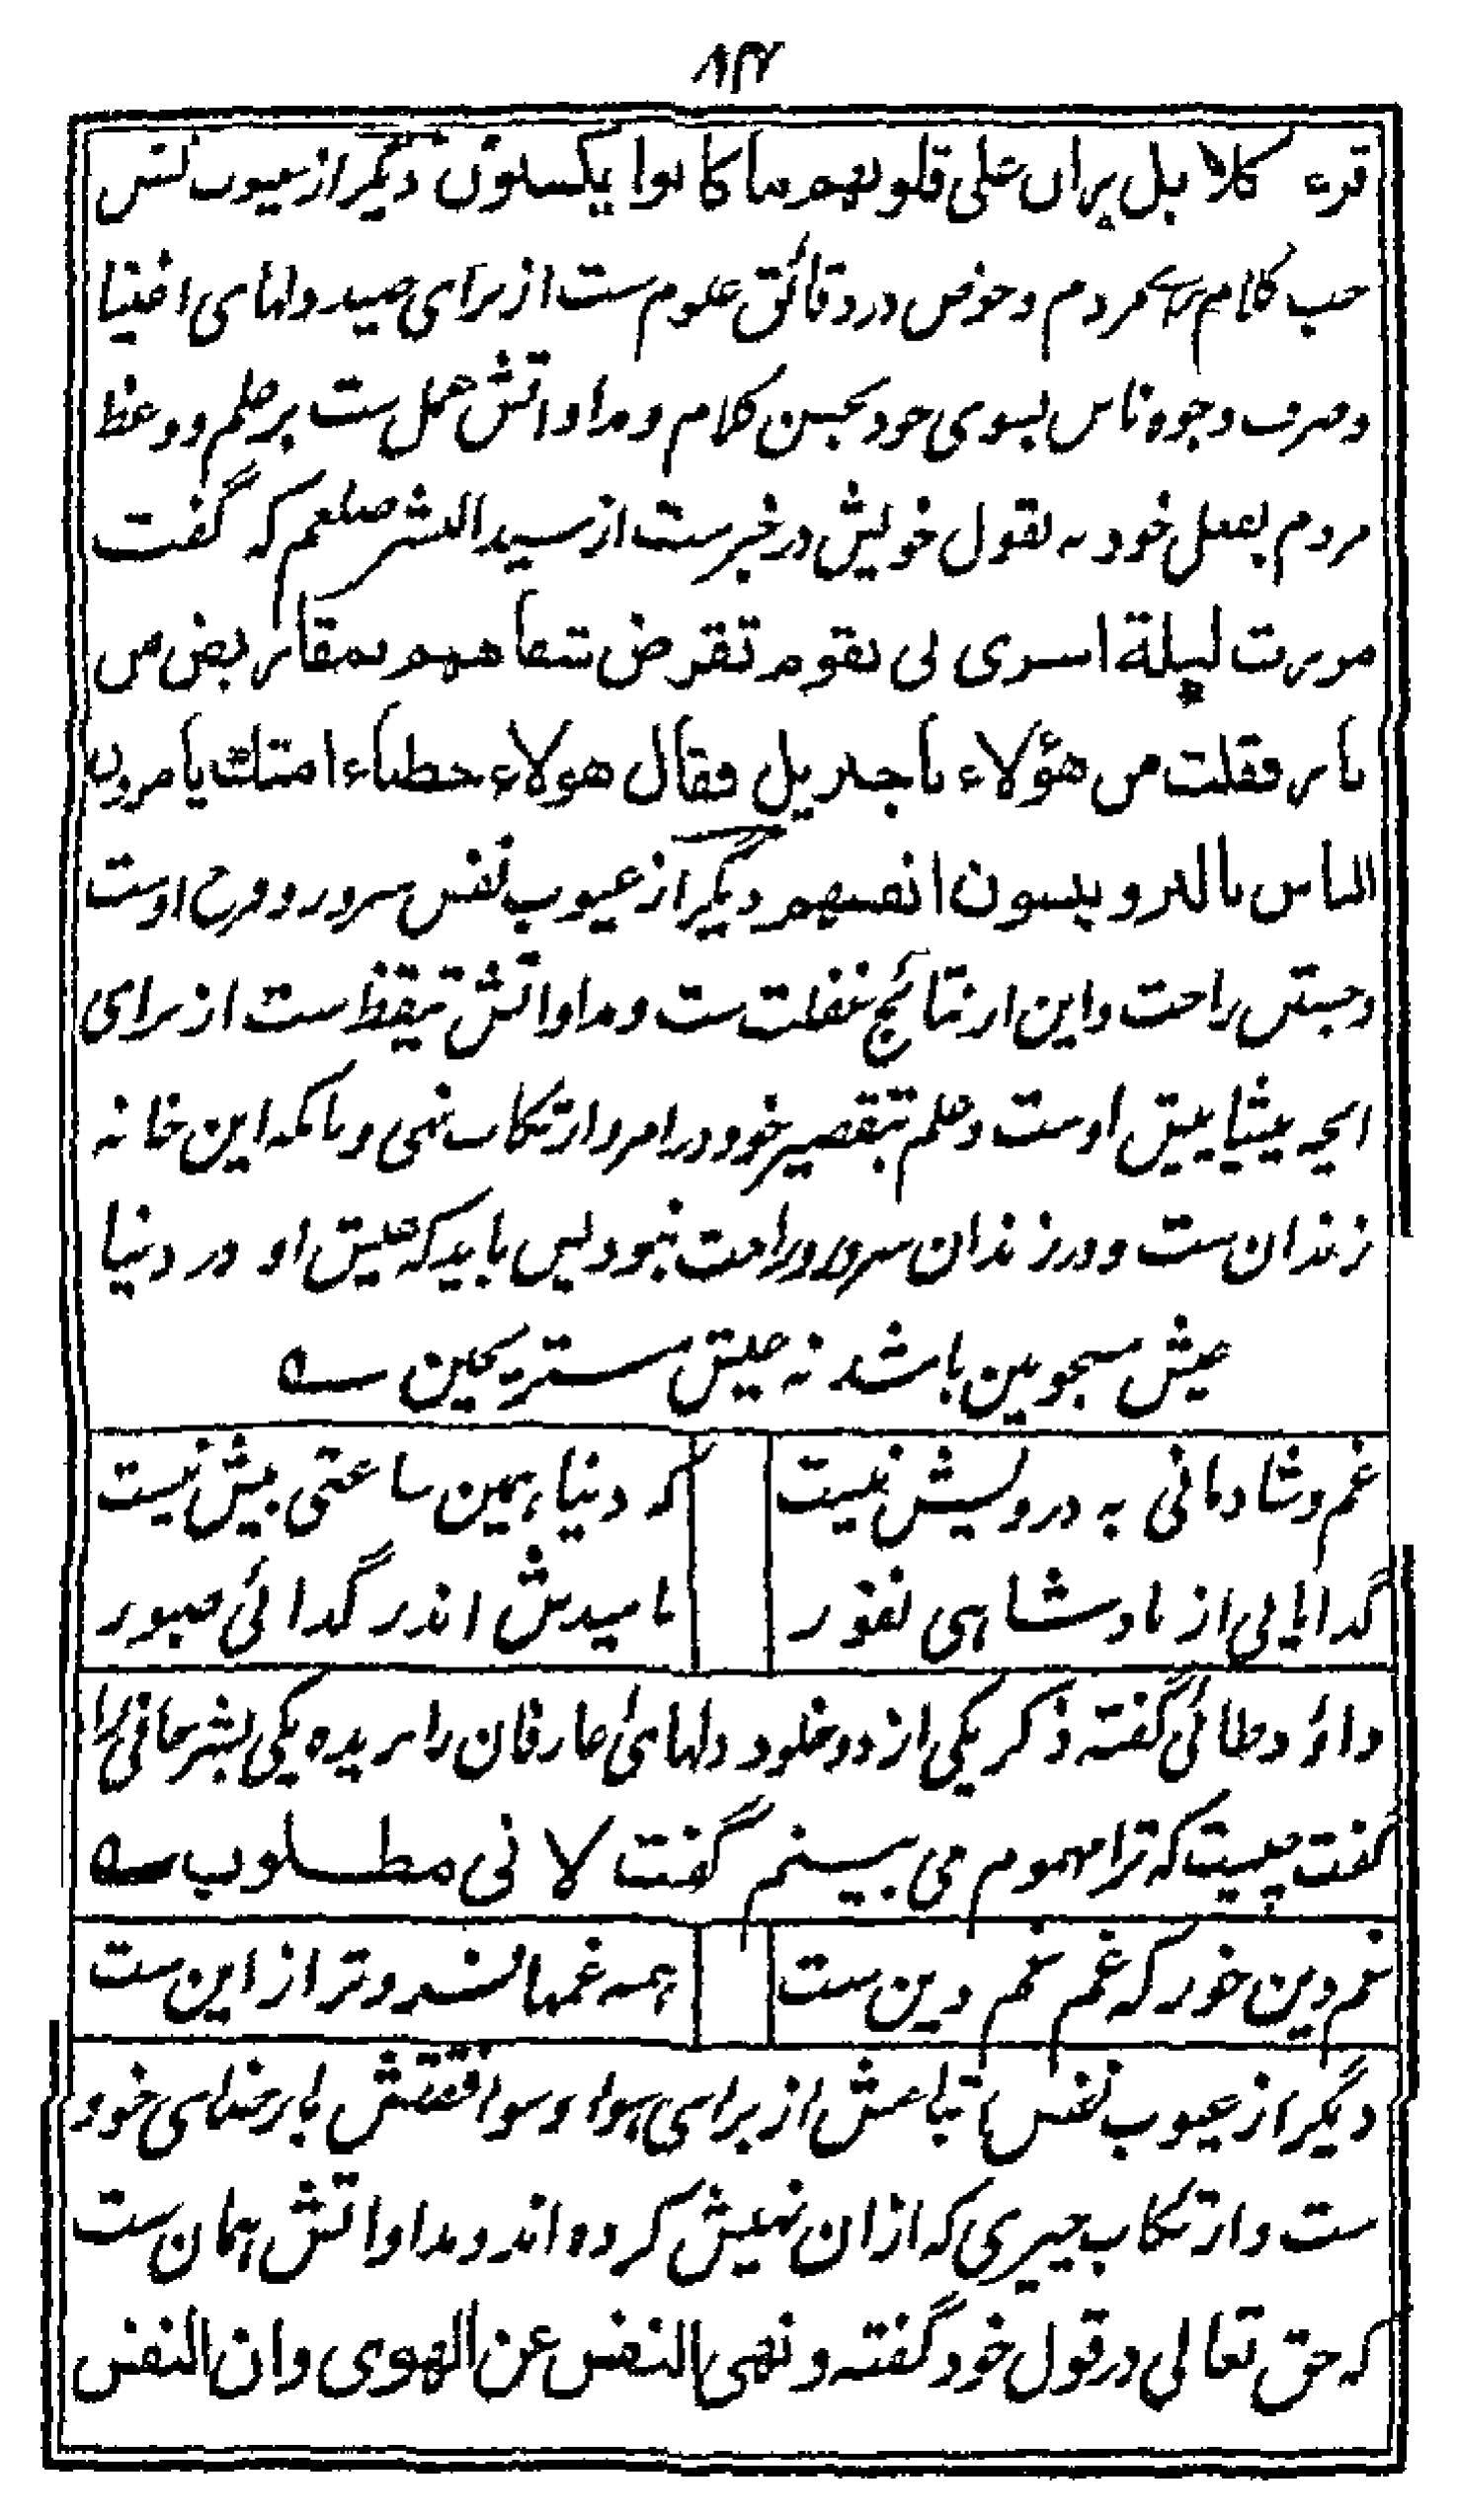 کلا بل ران علی قلوبهم ما کانوا یکسبون دیگر از عیوب نفس
حب کلام مردم و خوض در دقائق علوم ست از برای صید دلهای اغنیا
و صرف وجوه ناس بسوی خود بحسن کلام و مداواتش عمل ست بر علم و وعظ
مردم بفعل خود نه بقول خویش در خبرست از سید البشر صلعم که گفت
مررت لیلة اسری بی بقوم تقرض شفاههم بمقاریض من
نار فقلت من هؤلاء یا جبریل فقال هولاء خطباء امتک یامرون
الناس بالبر وینسون انفسهم دیگر از عیوب نفس سرور و فرح اوست
و جستن راحت و این از نتائج غفلت ست و مداواتش تیقظ ست از برای
انچه پیشاپیش اوست و علم بتقصیر خود در امر و ارتکاب نهی و بانکه این خانه
زندان ست و در زندان سرور و راحت نبود پس باید که عیش او در دنیا
عیش مسجونین باشد نه عیش مستریحین ؎
غم و شادمانی به درویش نیست
که دنیا همین ساعتی بیش نیست
گدایانی از پادشاهی نفور
بامیدش اندر گدائی صبور
داؤد طائی گفته ذکر یکی از دو خلود دلهای عارفان را بریده یکی بشر حافی را
گفت چیست که ترا مهموم می بینم گفت لانی مطلوب ؎
غم دین خور که غم غم دین ست
همه غمها فروتر از این ست
دیگر از عیوب نفس اتباعش از برای هوا و موافقتش با رضای خود
ست و ارتکاب چیزی که ازان نهیش کرده اند و مداواتش همان ست
که حق تعالی در قول خود گفته و نهی النفس عن الهوی وان النفس